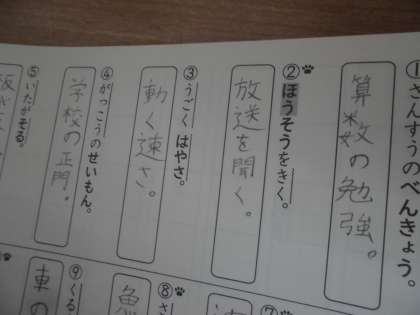 ①さんすうのべんきょう。
算数の勉強。
②ほうそうをきく。
放送を聞く。
③うごくはやさ。
動く速さ。
④がっこうのせいもん。
学校の正門。
⑤いたがそる。
板が
⑦
⑧さ
魚
⑨くる
車の